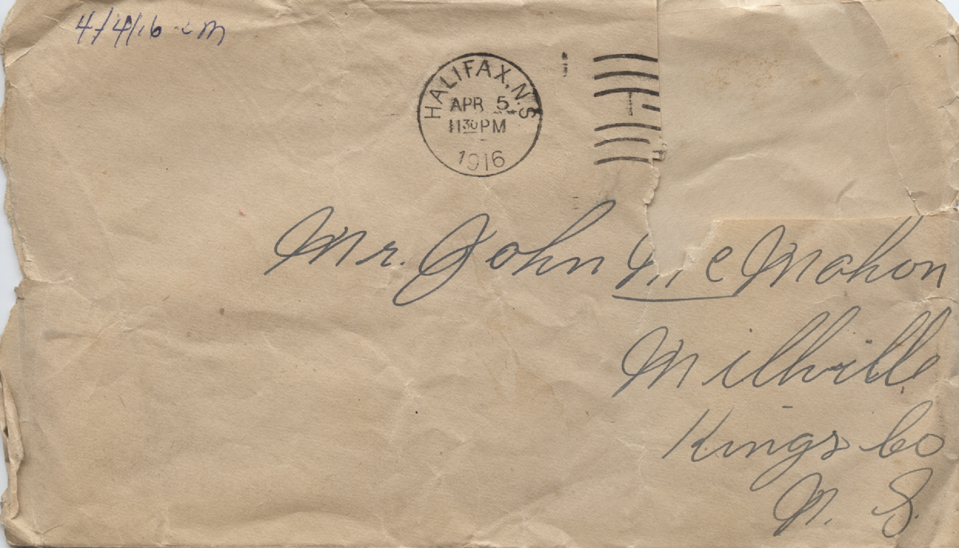 4/4/16
HALIFAX, N.S
APR 5
11 30 PM
1916
Mr. John Mc Mahon
Millville
Kings Co
N. S.